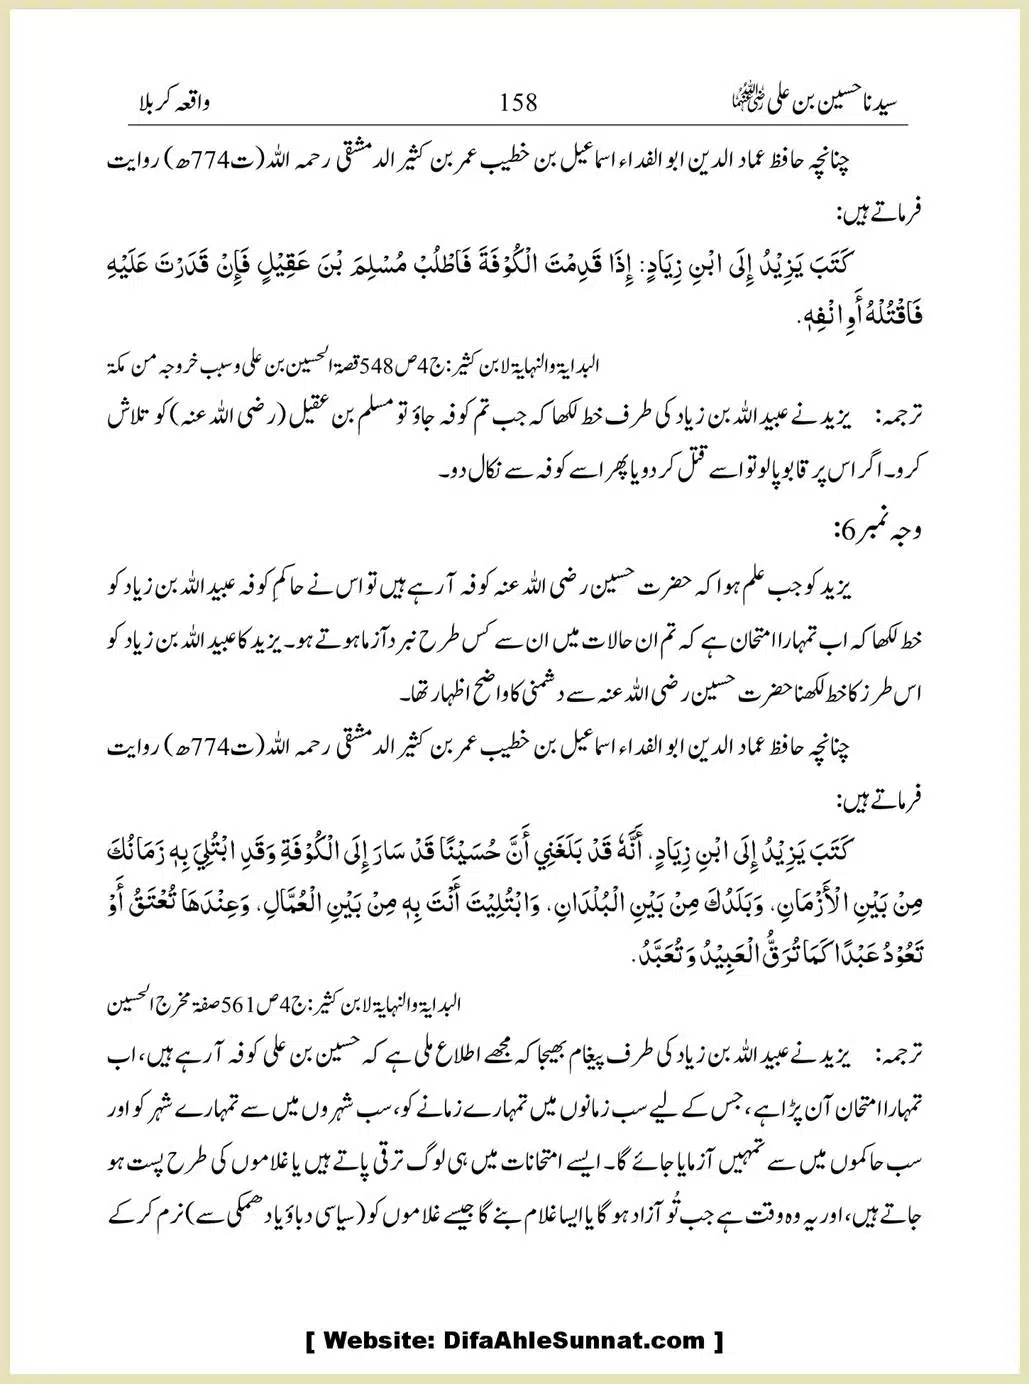 سیدنا حسین بن علی رضی اللہ عنہما 158 واقعہ کربلا
چنانچہ حافظ عماد الدین ابو الفداء اسماعیل بن خطیب عمر بن کثیر الدمشقی رحمہ اللہ (ت774ھ) روایت
فرماتے ہیں:
كَتَبَ يَزِيْدُ إِلَى ابْنِ زِيَادٍ: إِذَا قَدِمْتَ الْكُوْفَةَ فَاطْلُبْ مُسْلِمَ بْنَ عَقِيْلٍ فَإِنْ قَدَرْتَ عَلَيْهِ
فَاقْتُلْهُ أَوِ انْفِهٖ.
البدایۃ والنہایۃ لابن کثیر: ج4 ص548 قصۃ الحسین بن علی وسبب خروجہ من مکۃ
ترجمہ: یزید نے عبید اللہ بن زیاد کی طرف خط لکھا کہ جب تم کوفہ جاؤ تو مسلم بن عقیل (رضی اللہ عنہ) کو تلاش
کرو۔ اگر اس پر قابو پالو تو اسے قتل کر دو یا پھر اسے کوفہ سے نکال دو۔
وجہ نمبر 6:
یزید کو جب علم ہوا کہ حضرت حسین رضی اللہ عنہ کوفہ آرہے ہیں تو اس نے حاکمِ کوفہ عبید اللہ بن زیاد کو
خط لکھا کہ اب تمہارا امتحان ہے کہ تم ان حالات میں ان سے کس طرح نبرد آزما ہوتے ہو۔ یزید کا عبید اللہ بن زیاد کو
اس طرز کا خط لکھنا حضرت حسین رضی اللہ عنہ سے دشمنی کا واضح اظہار تھا۔
چنانچہ حافظ عماد الدین ابو الفداء اسماعیل بن خطیب عمر بن کثیر الدمشقی رحمہ اللہ (ت774ھ) روایت
فرماتے ہیں:
كَتَبَ يَزِيْدُ إِلَى ابْنِ زِيَادٍ. أَنَّهُ قَدْ بَلَغَنِي أَنَّ حُسَيْنًا قَدْ سَارَ إِلَى الْكُوْفَةِ وَقَدِ ابْتُلِيَ بِهٖ زَمَانُكَ
مِنْ بَيْنِ الْأَزْمَانِ، وَبَلَدُكَ مِنْ بَيْنِ الْبُلْدَانِ، وَابْتُلِيْتَ أَنْتَ بِهٖ مِنْ بَيْنِ الْعُمَّالِ، وَعِنْدَهَا تُعْتَقُ أَوْ
تَعُوْدُ عَبْدًا كَمَا تُرَقُّ الْعَبِيْدُ وَتُعَبَّدُ.
البدایۃ والنہایۃ لابن کثیر: ج4 ص561 صفۃ مخرج الحسین
ترجمہ: یزید نے عبید اللہ بن زیاد کی طرف پیغام بھیجا کہ مجھے اطلاع ملی ہے کہ حسین بن علی کوفہ آرہے ہیں، اب
تمہارا امتحان آن پڑا ہے، جس کے لیے سب زمانوں میں تمہارے زمانے کو، سب شہروں میں سے تمہارے شہر کو اور
سب حاکموں میں سے تمہیں آزمایا جائے گا۔ ایسے امتحانات میں ہی لوگ ترقی پاتے ہیں یا غلاموں کی طرح پست ہو
جاتے ہیں، اور یہ وہ وقت ہے جب تُو آزاد ہو گا یا ایسا غلام بنے گا جیسے غلاموں کو (سیاسی دباؤ یا دھمکی سے) نرم کر کے
[ Website: DifaAhleSunnat.com ]